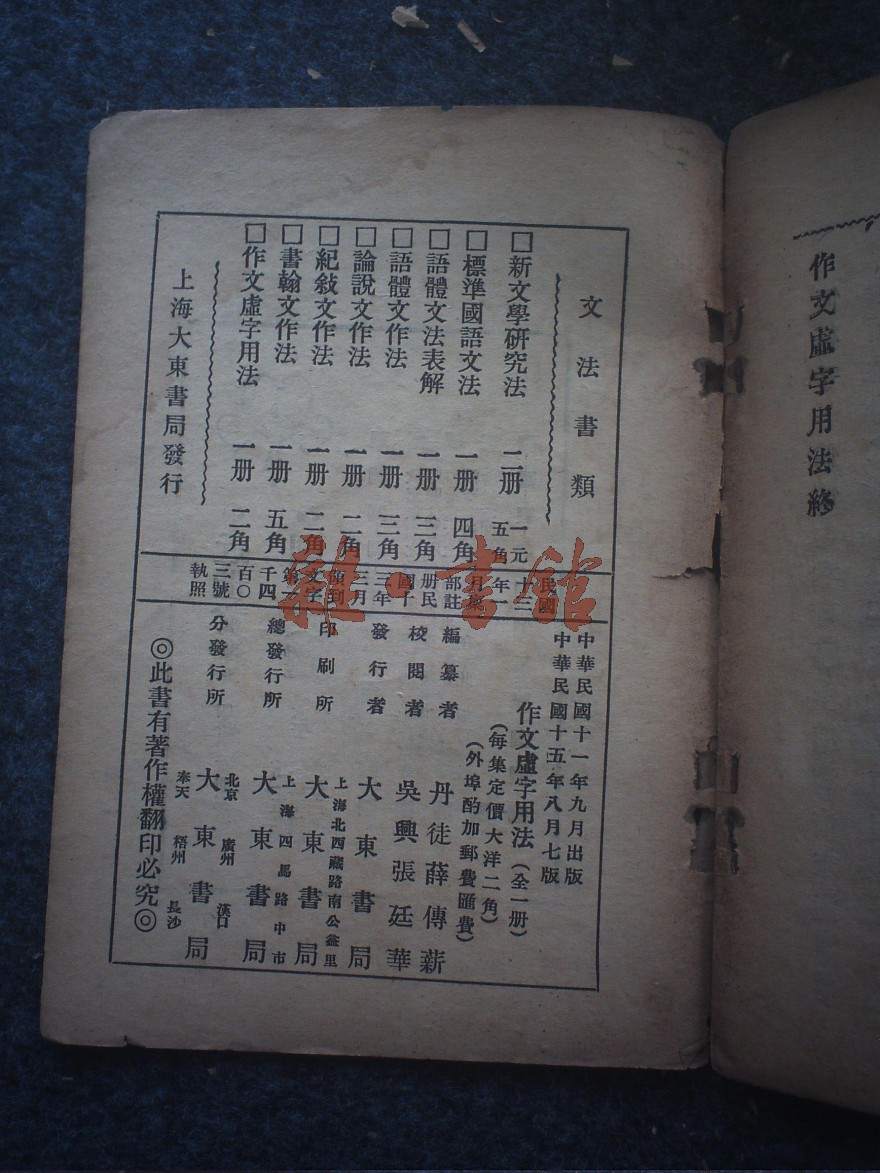 作文虛字用法終
文法書類
□新文學研究法 二册 一元五角
□標準國語文法 一册 四角
□語體文法表解 一册 三角
□語體文作法 一册 三角
□論說文作法 一册 二角
□紀敍文作法 一册 二角
□書翰文作法 一册 五角
□作文虛字用法 一册 二角
上海大東書局發行
民國
十三
年一
部註
册民
國十
三年
三月
領到
文字
千四
百〇
三號
執照
中華民國十一年九月出版
中華民國十五年八月七版
作文虛字用法(全一册)
(每集定價大洋二角)
(外埠酌加郵費匯費)
編纂者 丹徒薛傳薪
校閱者 吳興張廷華
發行者 大東書局
印刷所 上海北西藏路南公益里 大東書局
總發行所 上海四馬路中市 大東書局
分發行所 北京 廣州 漢口 大東書局 奉天 梧州 長沙
◎此書有著作權翻印必究◎
雜·書館